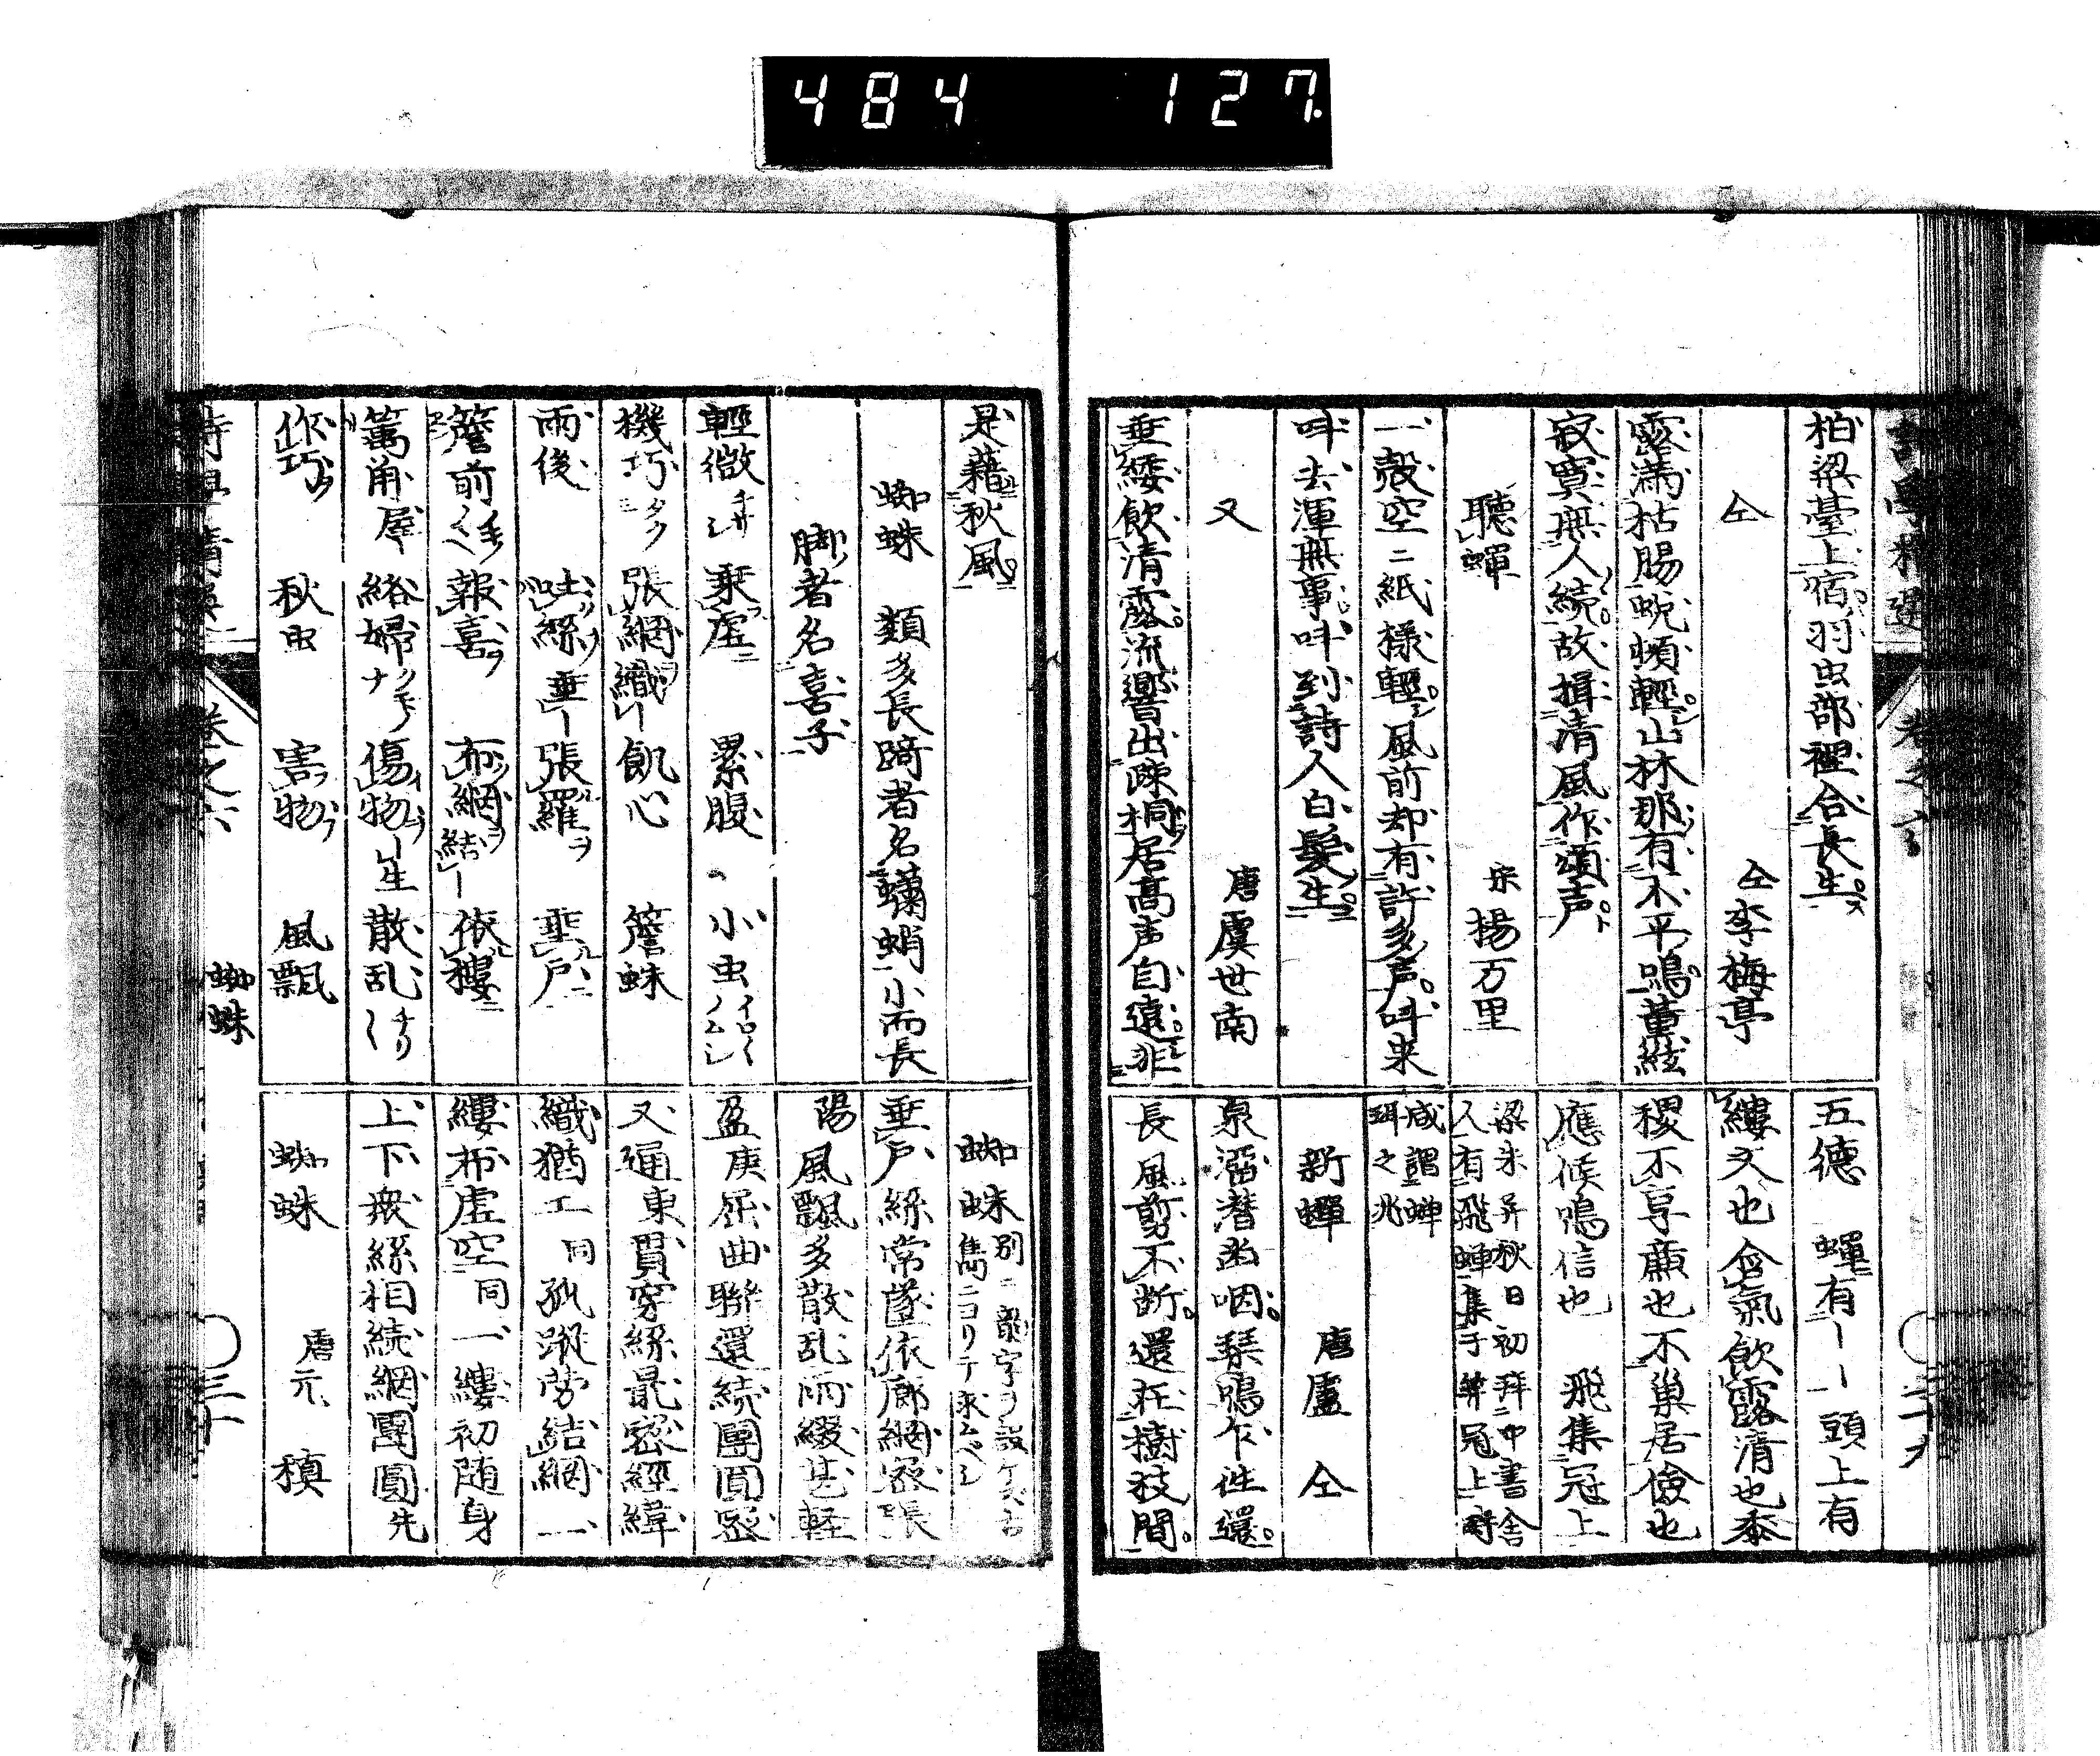 484 127
柏梁臺上宿羽虫部裡合長生
仝 仝李梅亭
露滿枯腸蛻頰輕山林那有不平鳴薫絃
寂寞無人続故揖清風作頌声
聽蝉 宋揚万里
一殼空ニ紙樣輕風前却有許多声呌来
呌去渾無事呌到詩人白髮生
又 唐虞世南
垂緌飲清露流響出踈桐居高声自遠非
五德 蟬有ーー頭上有
緌文也含氣飲露清也黍
稷不享廉也不巢居儉也
應候鳴信也 飛集冠上
梁朱异秋日初拜中書舍
人有飛蝉集于冠上
咸謂蝉
珥之兆
新蟬 唐盧仝
泉溜潛幽咽琴鳴乍往還
長風剪不断還在樹枝間
是藉秋風
蜘蛛 類多長踦者名蠨蛸小而長
脚者名喜子
輕微チサシ 乗虚ニ 累腹 小虫イロ〱ノムシ
機巧ニタク 張綱織ー 飢心 簷蛛
雨後 吐絲ヲ垂ー 張羅ヲ 垂戸ニ
簷前 報喜ヲ 布綱ヲ結ー 依樓ニ
篱角屋ー 絡婦 傷物ー生 散乱チリ〱
作巧ヲ 秋虫 害物ヲ 風飄
蜘蛛
垂戸絲常墜依廊網密張
陽風飄多散乱雨綴甚軽
盈庚屈曲聯還続團圓密
又通東貫穿絲最密經緯
織猶工同孤蹤労結綱一
縷布虚空同一縷初随身
上下衆絲相続綱團圓先
蜘蛛 唐元稹
卷之六
蜘蛛
三十